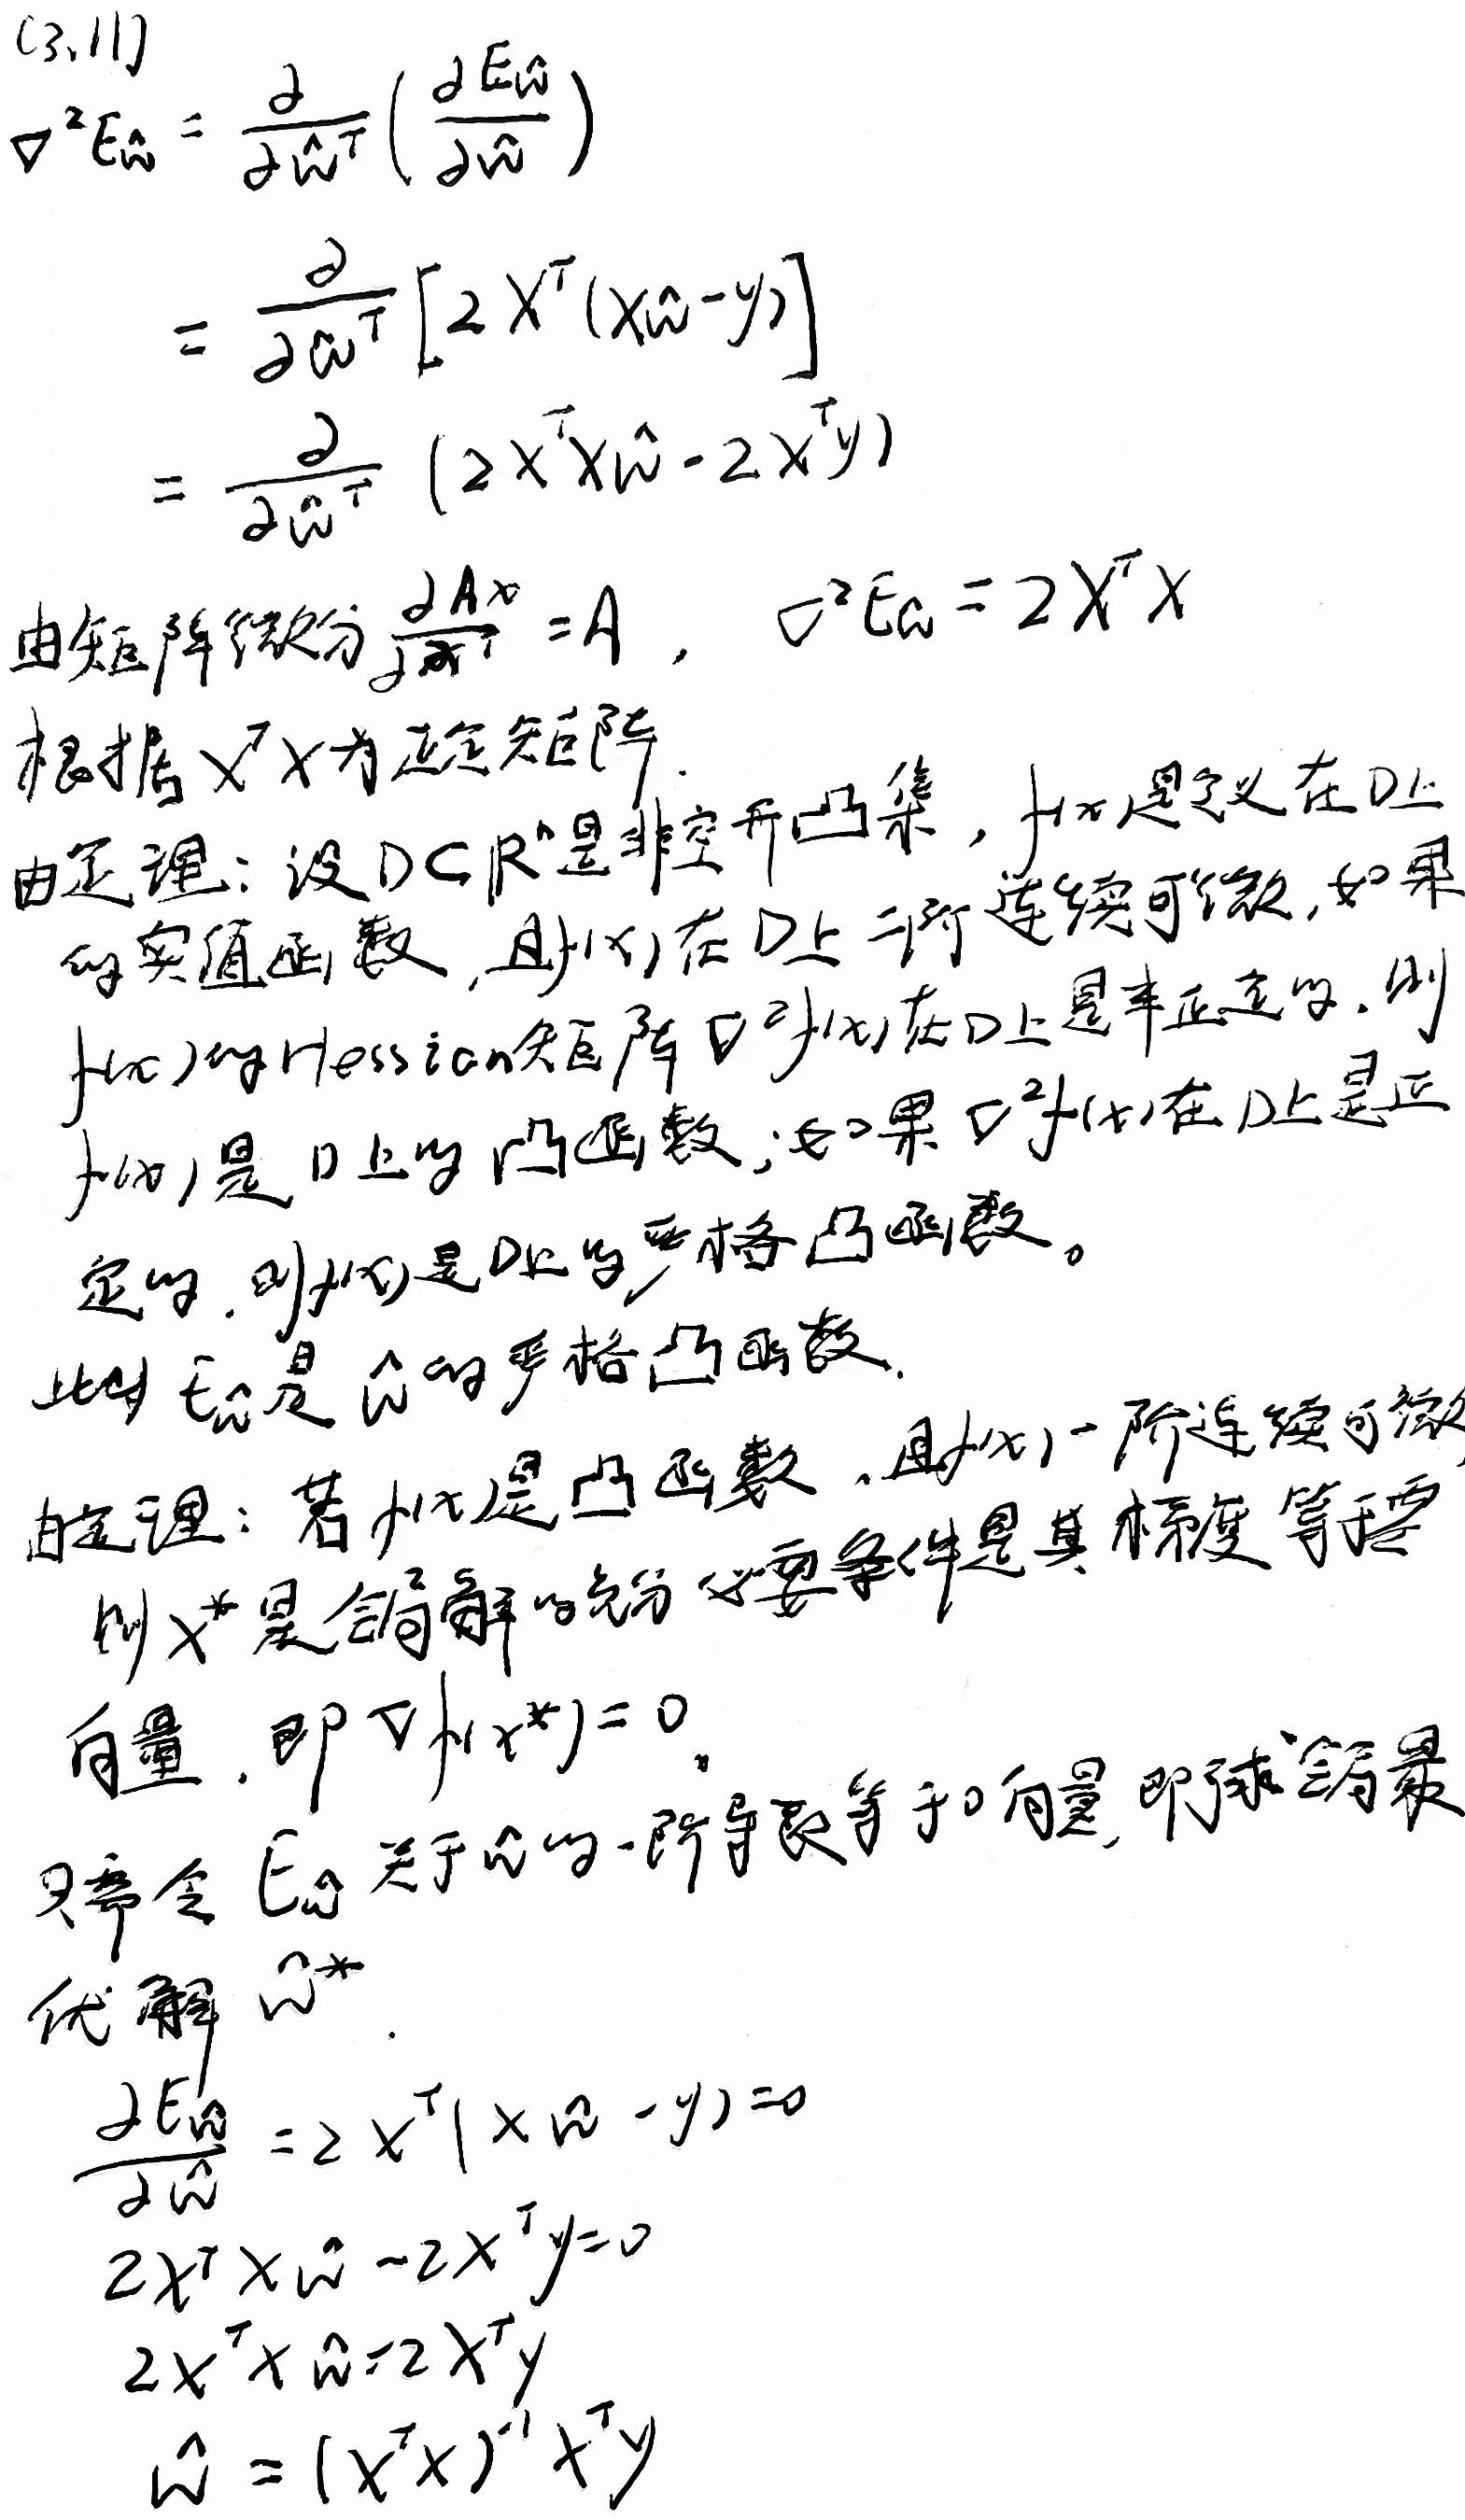 (3.11)
∇²Eŵ = ∂/∂ŵᵀ (∂Eŵ/∂ŵ)
= ∂/∂ŵᵀ [2Xᵀ(Xŵ-y)]
= ∂/∂ŵᵀ (2XᵀXŵ-2Xᵀy)
由矩阵微分 ∂Ax/∂xᵀ = A, ∇²Eŵ = 2XᵀX
根据XᵀX为正定矩阵.
由定理: 设D⊂Rⁿ是非空开凸集, f(x)是定义在D上
的实值函数, 且f(x)在D上二阶连续可微, 如果
f(x)的Hessian矩阵∇²f(x)在D上是半正定的, 则
f(x)是D上的凸函数; 如果∇²f(x)在D上是正
定的, 则f(x)是D上的严格凸函数。
此时Eŵ是ŵ的严格凸函数.
由定理: 若f(x)是凸函数, 且f(x)一阶连续可微
则x*是全局解的充分必要条件是其梯度等于零
向量, 即∇f(x*)=0.
只需令Eŵ关于ŵ的一阶导数等于0向量, 即求全局最
优解ŵ*.
∂Eŵ/∂ŵ = 2Xᵀ(Xŵ-y)=0
2XᵀXŵ-2Xᵀy=0
2XᵀXŵ=2Xᵀy
ŵ = (XᵀX)⁻¹Xᵀy